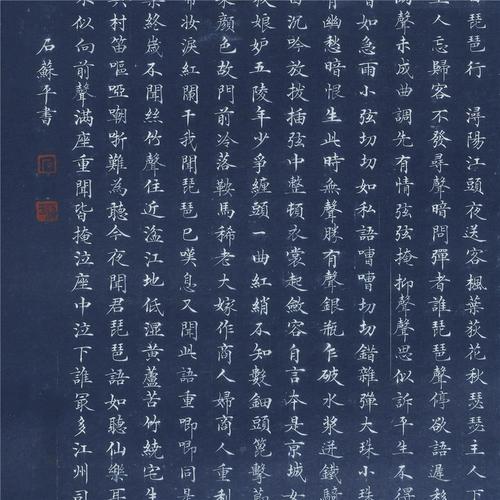 琵琶行 潯陽江頭夜送客楓葉荻花秋瑟瑟主人下
主人忘歸客不發尋聲暗問彈者誰琵琶聲停欲語遲移
聲未成曲調先有情弦弦掩抑聲聲思似訴平生不得
嘈如急雨小弦切切如私語嘈嘈切切錯雜彈大珠小珠
有幽愁暗恨生此時無聲勝有聲銀瓶乍破水漿迸鐵騎
白沉吟放撥插弦中整頓衣裳起斂容自言本是京城女
秋娘妒五陵年少爭纏頭一曲紅綃不知數鈿頭篦擊
來顏色故門前冷落鞍馬稀老大嫁作商人婦商人重利
啼妝淚紅闌干我聞琵琶已嘆息又聞此語重唧唧同是
樂終歲不聞絲竹聲住近湓江地低濕黃蘆苦竹繞宅生
與村笛嘔啞嘲哳難為聽今夜聞君琵琶語如聽仙樂耳
不似向前聲滿座重聞皆掩泣座中泣下誰最多江州司
石蘇平書